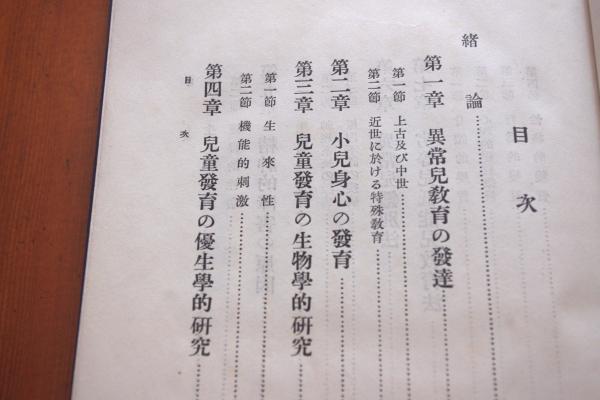 目次
緒論
第一章 異常兒敎育の發達
第一節 上古及び中世
第二節 近世に於ける特殊敎育
第二章 小兒身心の發育
第三章 兒童發育の生物學的硏究
第一節 生來性
第二節 機能的刺激
第四章 兒童發育の優生學的硏究
目次